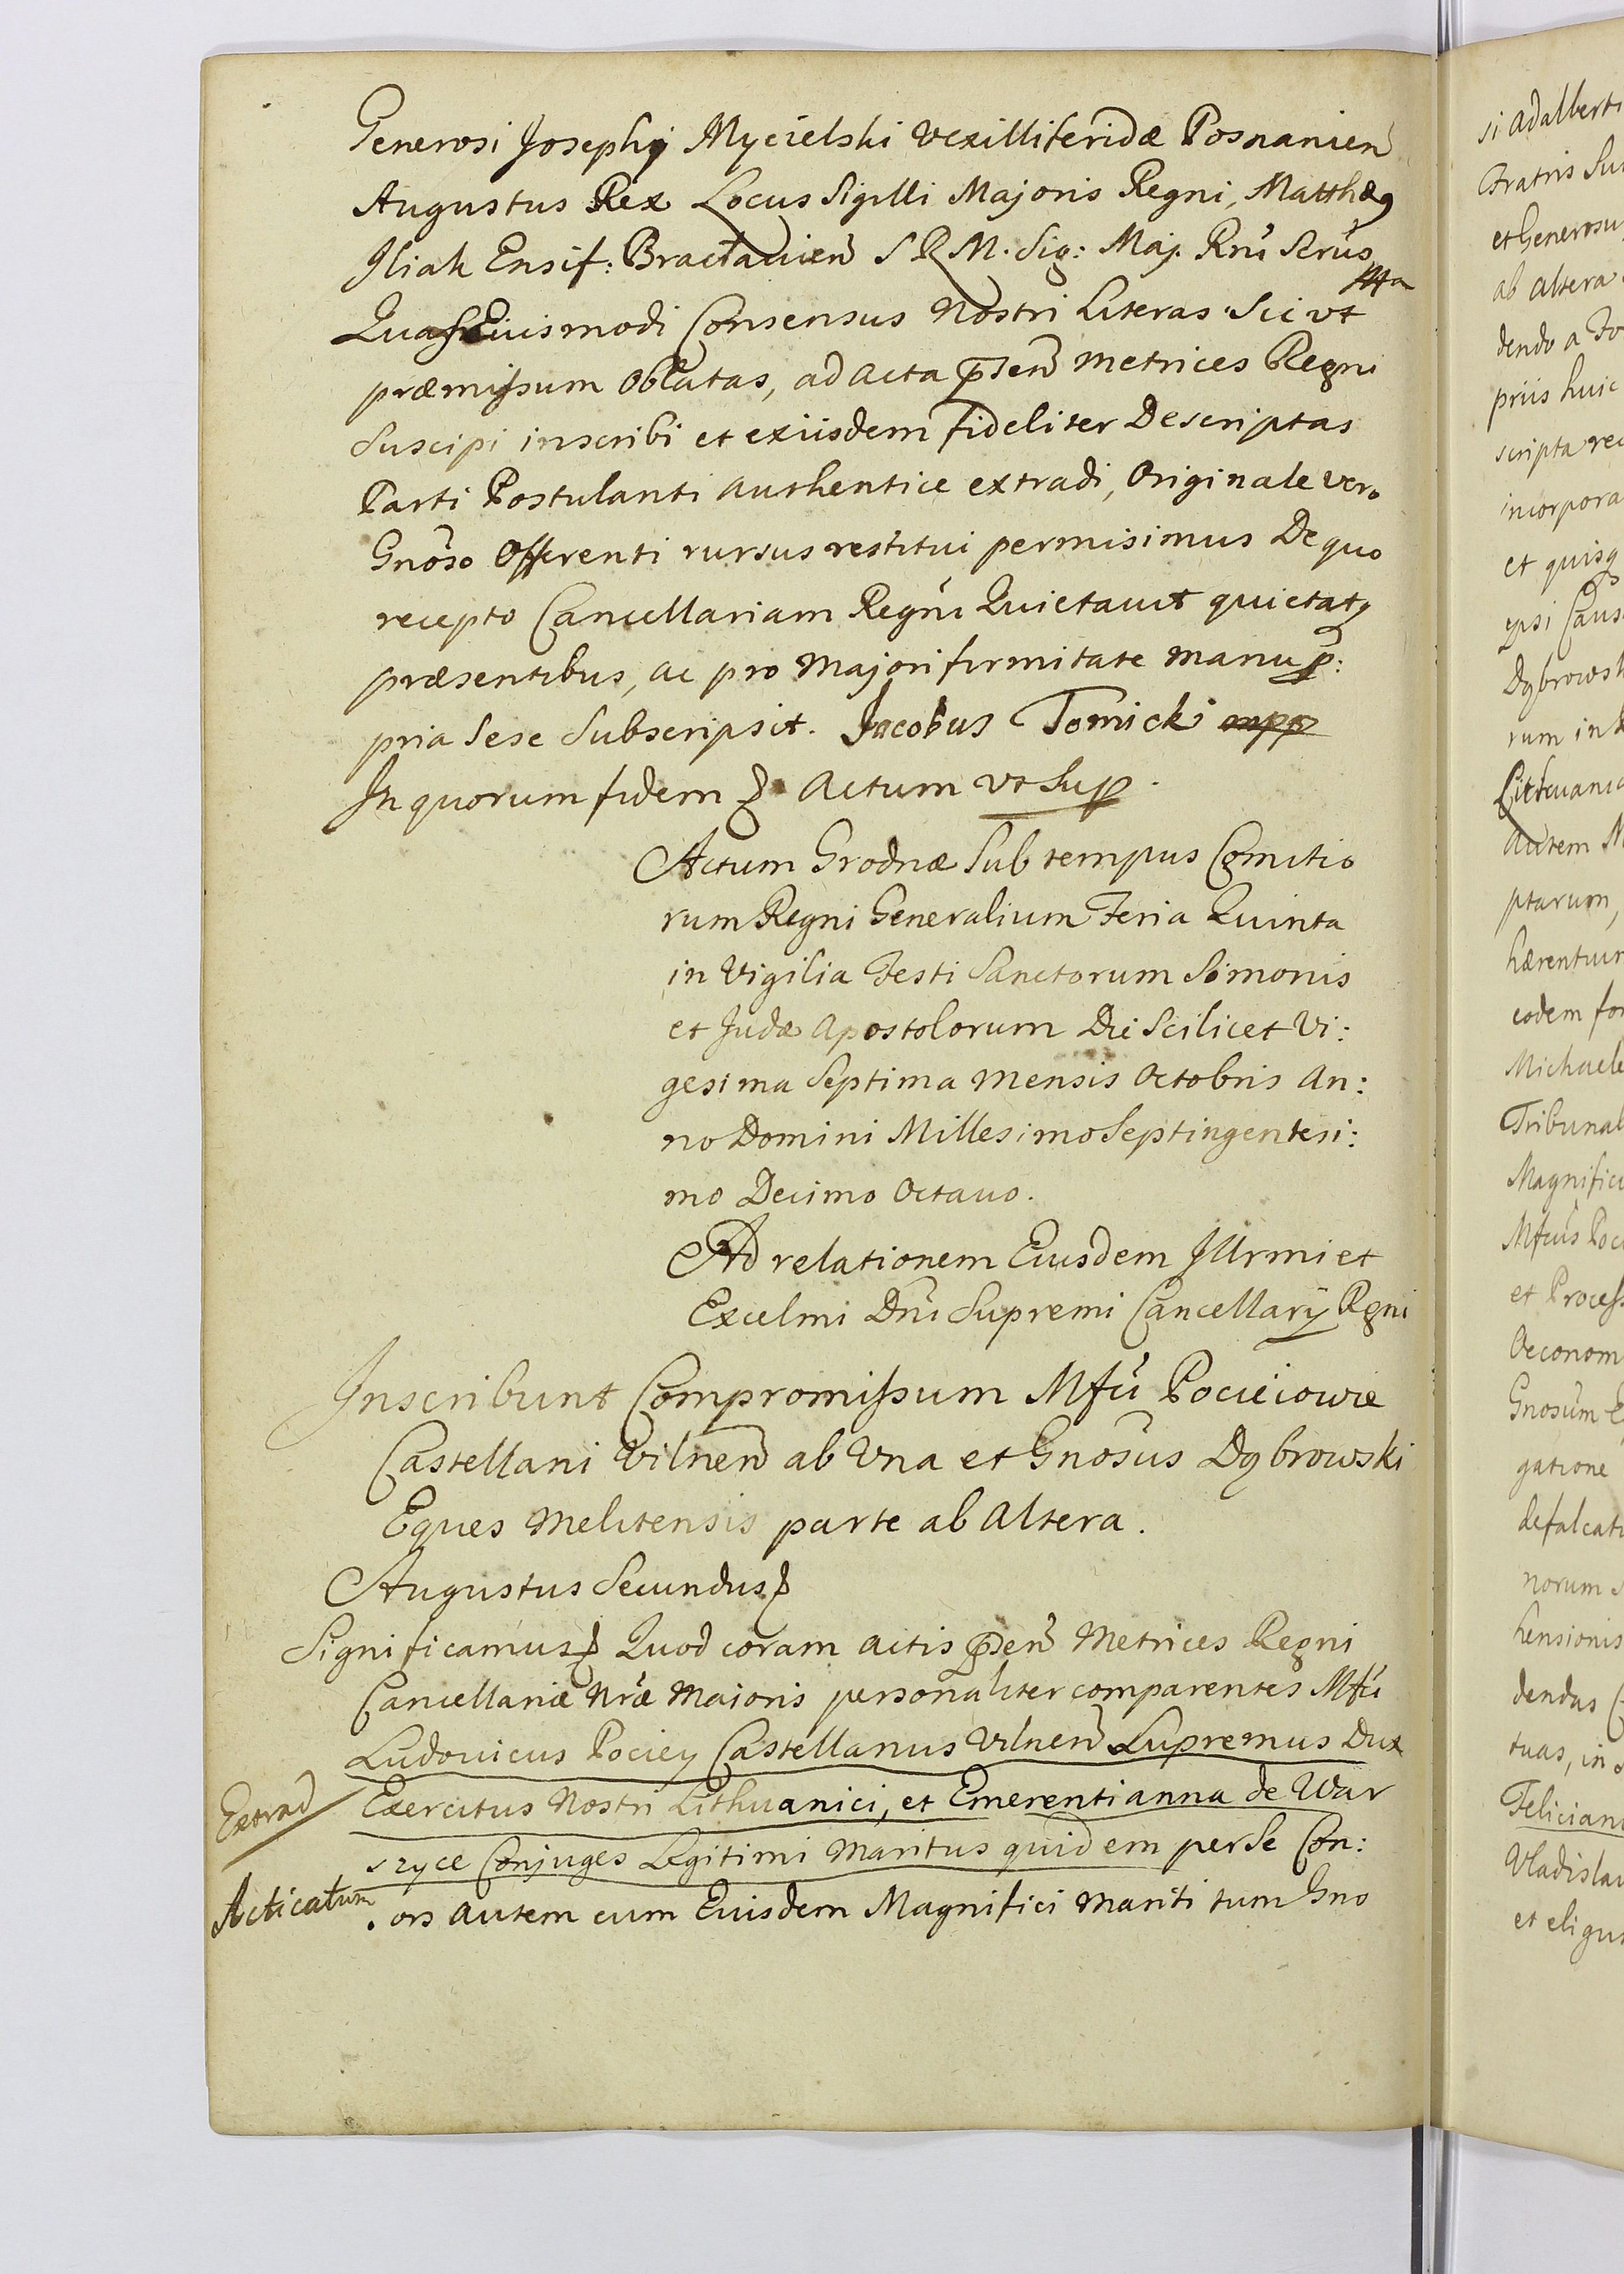 Generosi Josephi Mycielski Vexilliferidæ Posnanien
Augustus Rex Locus Sigilli Majoris Regni, Matthæ9
Iliak Ensif: Braclavien S R M. Sig: Maj. Rni Scrus
mpp
Quas Eiusmodi Consensus Nostri Literas Sic vt
præmissum Oblatas, ad acta pñten Metrices Regni
Suscipi inscribi et exiisdem fideliter Descriptas
Parti Postulanti authentice extradi, Originale vero
Gnoso Offerenti rursus restitui permisimus De quo
recepto Cancellariam Regni Quietauit quietatq
præsentibus, ac pro Majori firmitate Manu p:
pria Sese Subscripsit. Jacobus Tomicki mpp
In quorum fidem & Actum vt Sup.
Actum Grodnæ Sub tempus Comitio
rum Regni Generalium Feria Quinta
in Vigilia Festi Sanctorum Simonis
et Judæ Apostolorum Die Scilicet Vi:
gesima Septima Mensis Octobris An:
no Domini Millesimo Septingentesi:
mo Decimo Octauo.
Ad relationem Eiusdem Illrmi et
Excelmi Dni Supremi Cancellarÿ Rgni
Inscribunt Compromissum Mfci Pocieiowie
Castellani Vilnen ab Vna et Gnosus Dąbrowski
Eques Melitensis parte ab Altera.
Augustus Secundus &
Significamus & Quod coram actis pñten Metrices Regni
Cancellariæ Nræ Maioris personaliter comparentes Mfci
Ludouicus Pociey Castellanus Vilnen Supremus Dux
Extrad
Exercitus Nostri Lithuanici, et Emerentianna de War
szyce Conjuges Legitimi Maritus quidem per Se Con:
Acticatum
.ors autem cum Eiusdem Magnifici Mariti tum Gno
si Adalberti
Fratris
et Generosu
ab altera
dendo a
priis huic
scripta
incorpora
et quisq
Dąbrowsk
rum in
Lithuanic
autem
ptarum,
hærentur
eodem
Michaele
Tribunal
Magnific
Mfcus
et Process
Oeconom
Gnosum
gatione
defalcat
norum
hensionis
dendas
tuas, in
Felician
Vladislau
et eligu